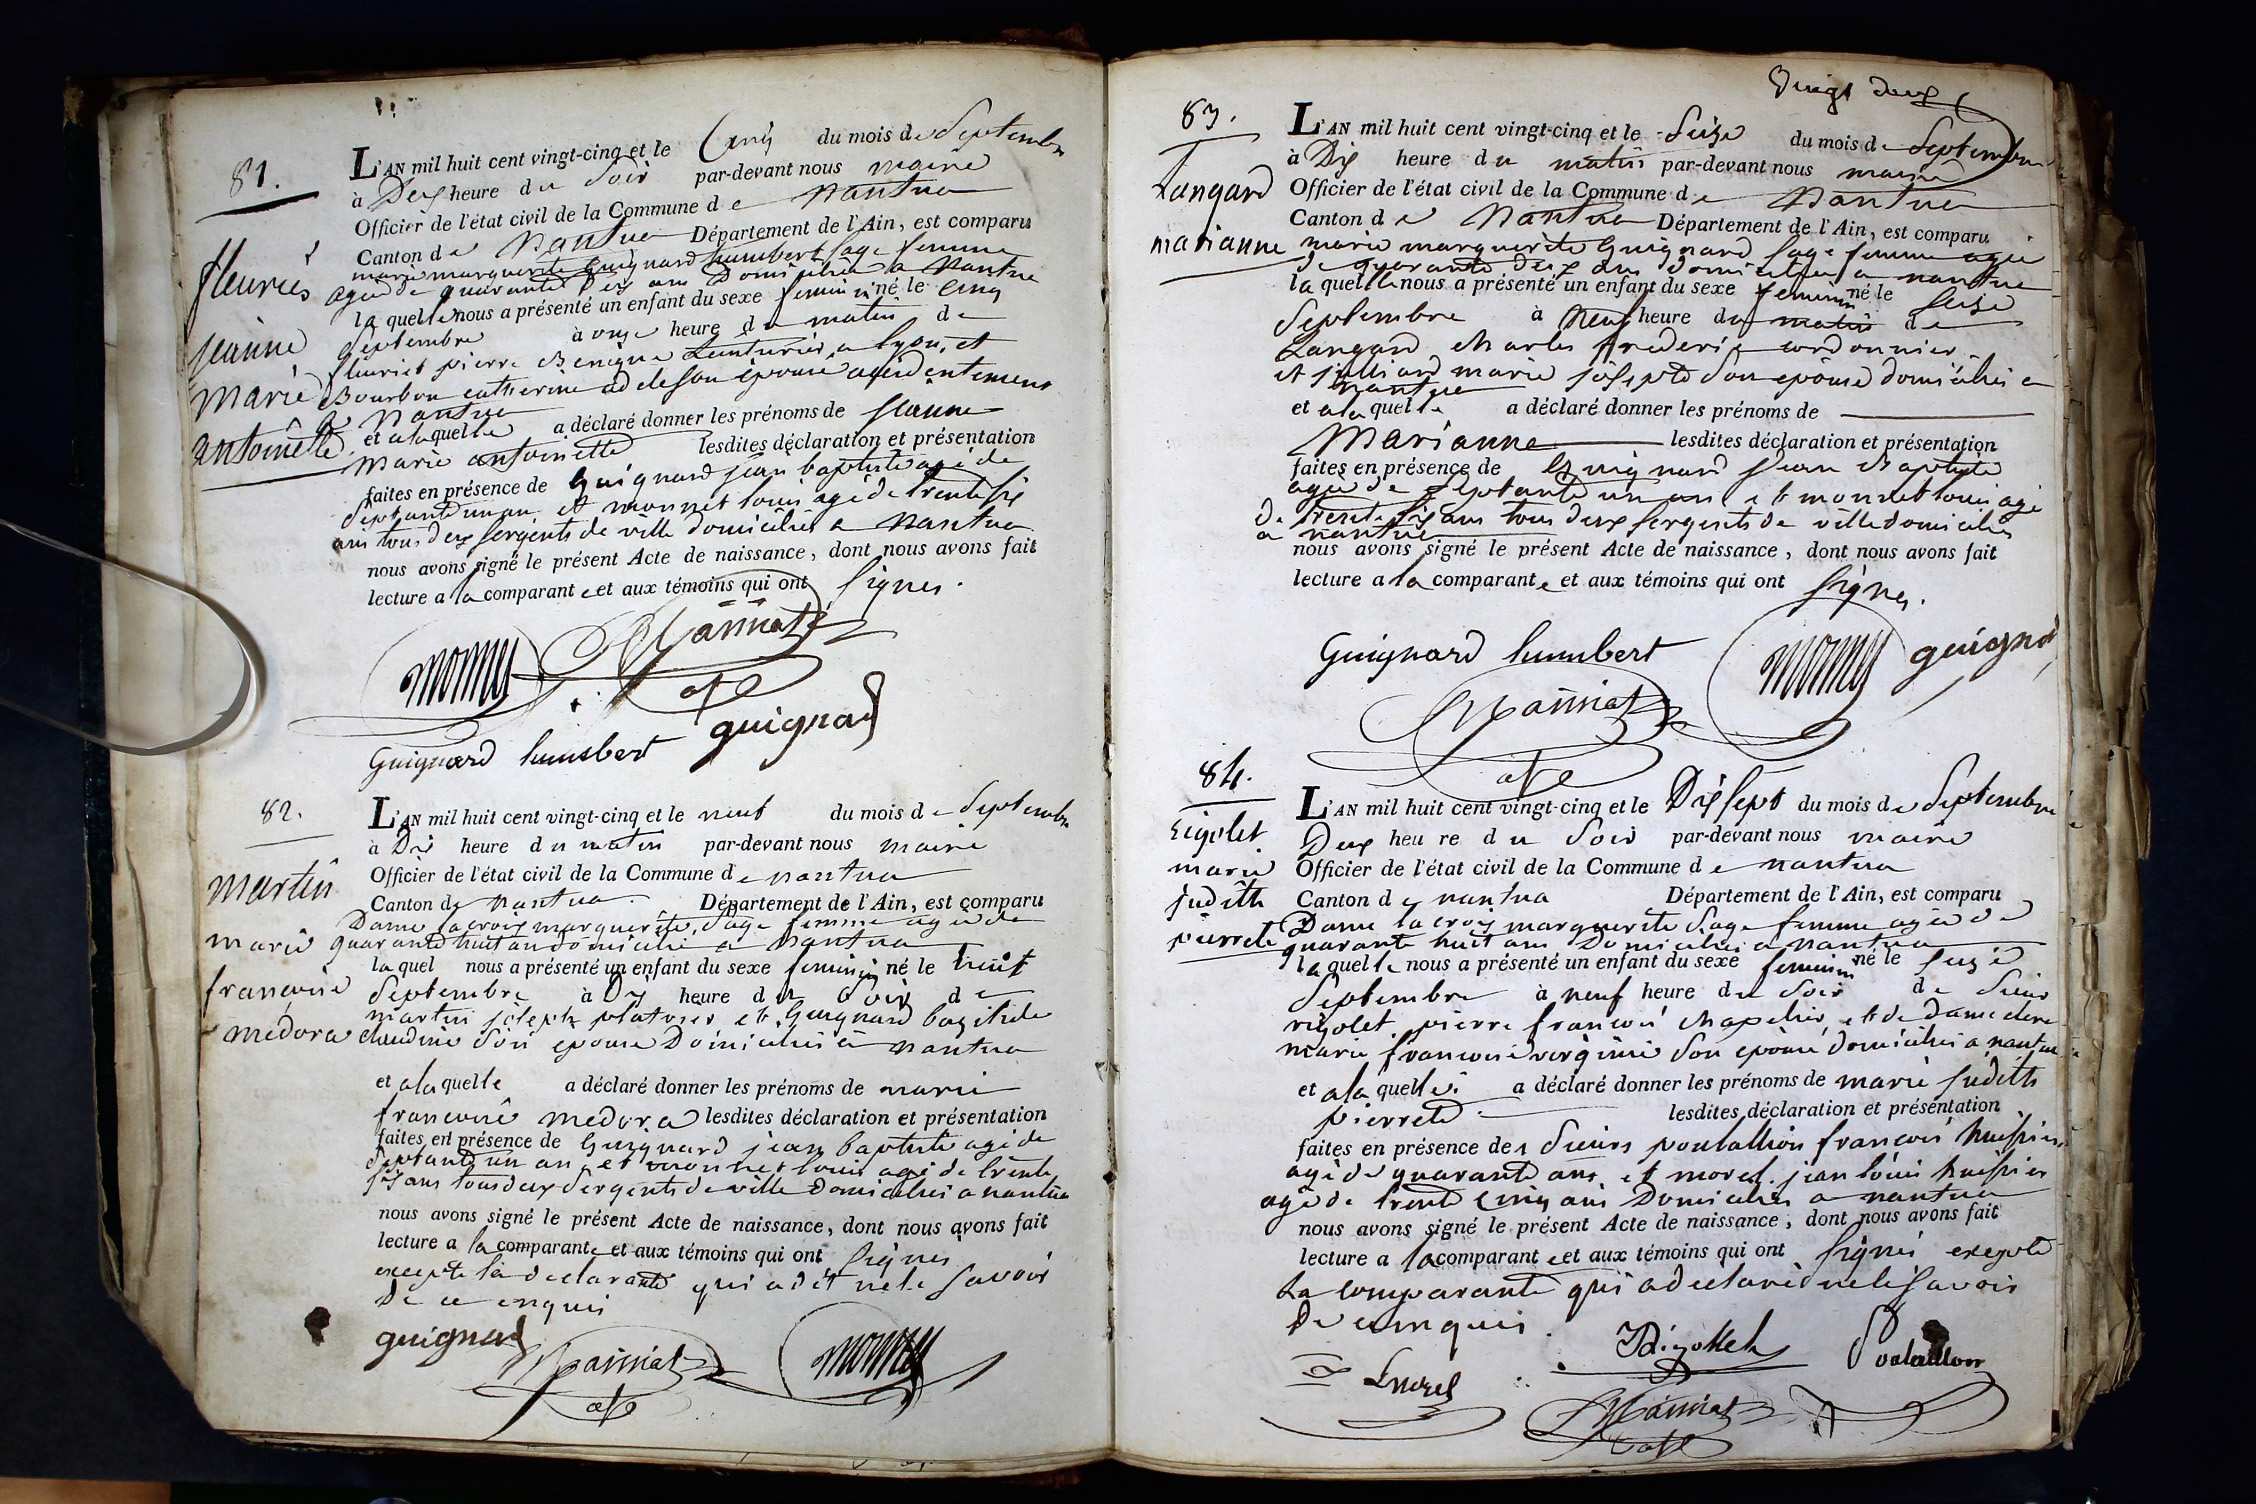 81.
fleuriés
jeanne
marie
antoinette
L'AN mil huit cent vingt-cinq et le cinq du mois de Septembre
à Deux heure du Soir par-devant nous maire
Officier de l'état civil de la Commune de nantua
Canton de nantua Département de l'Ain, est comparu
marie marguerite guignard humbert sage femme
agée de quarante deux ans Domiciliée a nantua
laquelle nous a présenté un enfant du sexe feminin né le cinq
Septembre à onze heure du matin de
fleuriet pierre Benigne à lyon, et
Bourbon catherine adele son épouse accidentement
a nantua
et alaquelle a déclaré donner les prénoms de jeanne
marie antoinette lesdites déclaration et présentation
faites en présence de guignard jean baptiste agé de
Septante un an et monnet louis agé de trente six
ans tous deux sergents de ville domiciliés a nantua
nous avons signé le présent Acte de naissance, dont nous avons fait
lecture a la comparante et aux témoins qui ont signés.
guignard
Guignard humbert
82.
martin
marie
francoise
medora
L'AN mil huit cent vingt-cinq et le neuf du mois de Septembre
à Dix heure du matin par-devant nous maire
Officier de l'état civil de la Commune de nantua
Canton de nantua Département de l'Ain, est comparu
Dame lacroix marguerite, sage femme agée de
quarante huit an domicilié a nantua
laquel nous a présenté un enfant du sexe feminin né le huit
Septembre à Dix heure du Soir de
martin joseph platrier et Guignard bazilide
claudine son epouse Domiciliés à nantua
et alaquelle a déclaré donner les prénoms de marie
francoise medora lesdites déclaration et présentation
faites en présence de Guignard jean baptiste agé de
septante un an et monnet louis agé de trente
six ans tous deux Sergents de ville Domiciliés a nantua
nous avons signé le présent Acte de naissance, dont nous avons fait
lecture a la comparante et aux témoins qui ont signés
excepte la declarante qui a dit ne le savoir
De ce enquis
guignard
vingt deux
83.
Langard
marianne
L'AN mil huit cent vingt-cinq et le seize du mois de Septembre
à Dix heure du matin par-devant nous maire
Officier de l'état civil de la Commune de Nantua
Canton de Nantua Département de l'Ain, est comparu
marie marguerite Guignard sage femme agée
de quarante deux ans domiciliée a nantua
laquelle nous a présenté un enfant du sexe feminin né le seize
Septembre à neuf heure du matin de
Langard charles frederic cordonnier
et julliard marie josepte son epouse domiciliés a
nantua
et alaquelle a déclaré donner les prénoms de
Marianne lesdites déclaration et présentation
faites en présence de Guignard jean Baptiste
agée de Septante un an et monnet louis agé
de trente six ans tous deux sergents de ville domiciliés
a nantua
nous avons signé le présent Acte de naissance, dont nous avons fait
lecture a la comparante et aux témoins qui ont signés.
Guignard humbert
guignard
84.
rigolet
marie
judith
pierrete
L'AN mil huit cent vingt-cinq et le Dix sept du mois de Septembre
Deux heure du Soir par-devant nous maire
Officier de l'état civil de la Commune de nantua
Canton de nantua Département de l'Ain, est comparu
Dame la croix marguerite sage femme agée de
quarante huit ans Domiciliée a nantua
laquelle nous a présenté un enfant du sexe feminin né le seize
Septembre à neuf heure du Soir de Sieur
rigolet pierre francois chapelier et de dame
marie francoise virginie son epouse domiciliés a nantua
et alaquelle a déclaré donner les prénoms de marie judith
pierrete lesdites déclaration et présentation
faites en présence des Sieurs poulallion francois huissier
agé de quarante ans et morel jean louis huissier
agé de trente cinq ans Domiciliés a nantua
nous avons signé le présent Acte de naissance, dont nous avons fait
lecture a la comparante et aux témoins qui ont signés excepté
La comparante qui a declaré ne le savoir
De ce enquis.